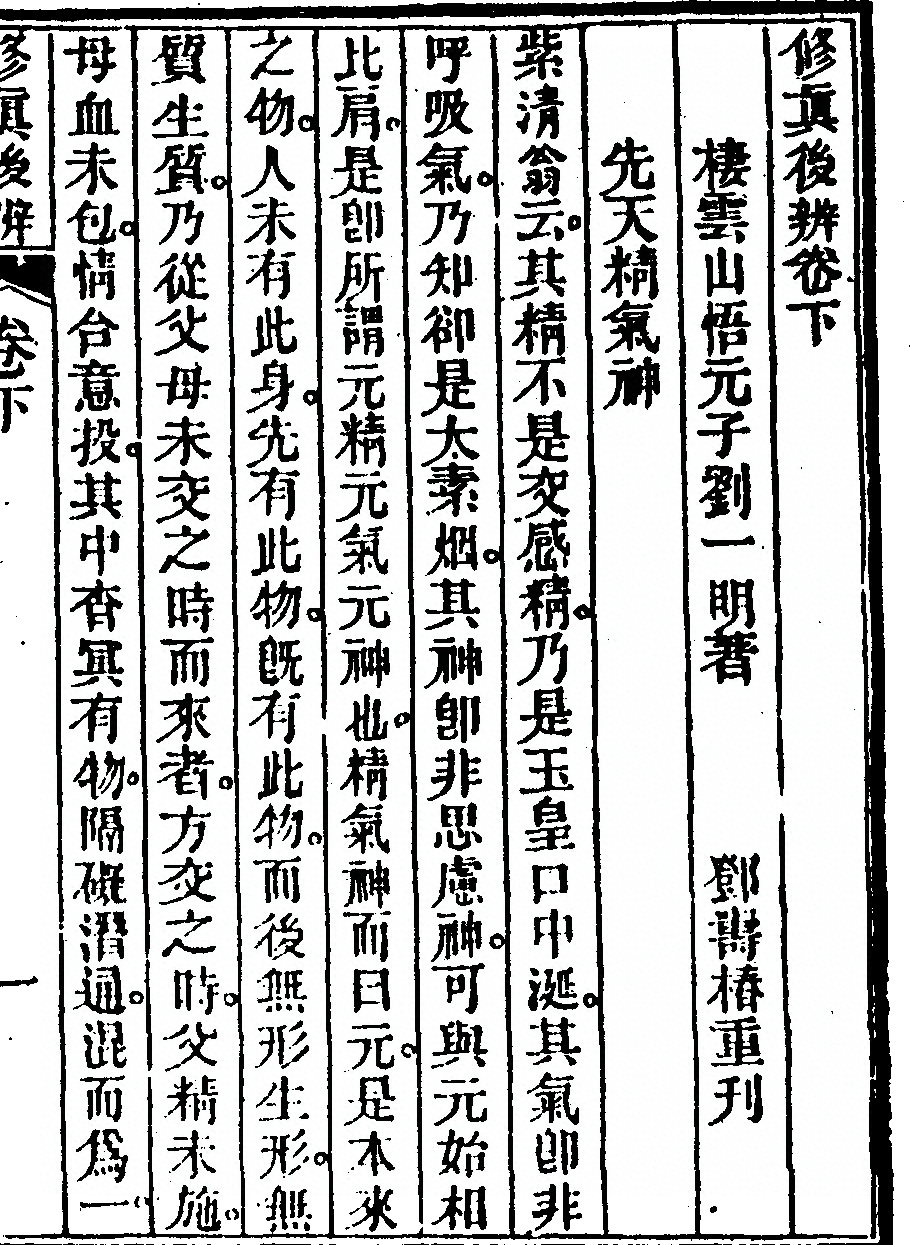 修真後辨卷下
棲雲山悟元子劉一明著　鄧壽椿重刊
先天精氣神
紫清翁云。其精不是交感精。乃是玉皇口中涎。其氣卽非
呼吸氣。乃知卻是太素烟。其神卽非思慮神。可與元始相
比肩。是卽所謂元精元氣元神也。精氣神而曰元。是本來
之物。人未有此身。先有此物。旣有此物。而後無形生形。無
質生質。乃從父母未交之時而來者。方交之時。父精未施。
母血未包。情台意投。其中杳冥有物。隔礙潛通。混而爲一。
修真後辨
卷下
一